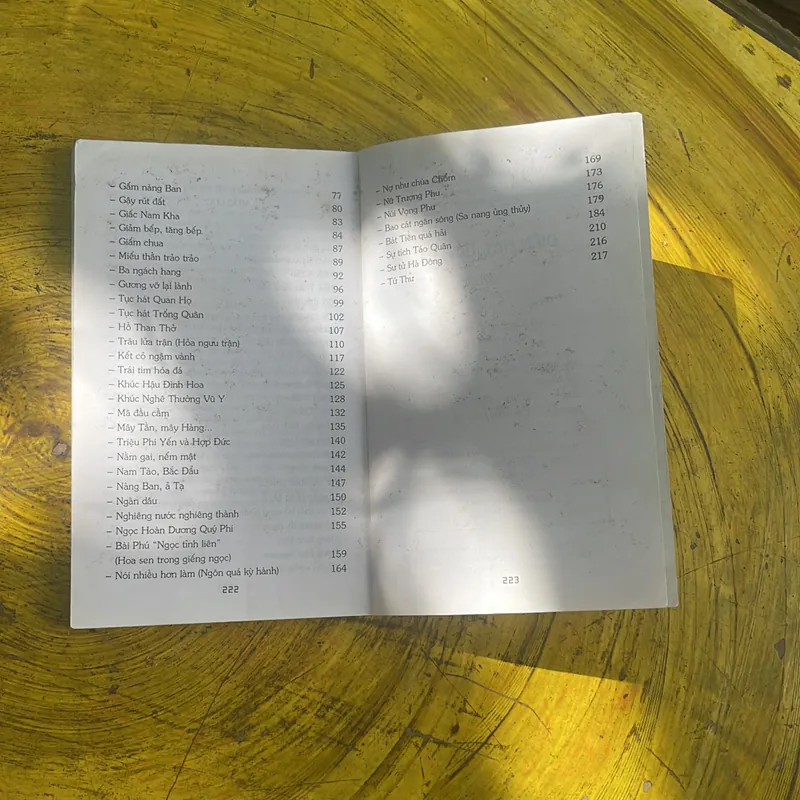 – Gấm nàng Ban 77
– Gậy rút đất 80
– Giấc Nam Kha 83
– Giảm bếp, tăng bếp 84
– Giấm chua 87
– Miếu thần trảo trảo 89
– Ba ngách hang 92
– Gương vỡ lại lành 96
– Tục hát Quan Họ 99
– Tục hát Trống Quân 102
– Hồ Than Thở 107
– Trâu lửa trận (Hỏa ngưu trận) 110
– Kết cỏ ngậm vành 117
– Trái tim hóa đá 122
– Khúc Hậu Đình Hoa 125
– Khúc Nghê Thường Vũ Y 128
– Mã đầu cầm 132
– Mây Tần, mây Hàng... 135
– Triệu Phi Yến và Hợp Đức 140
– Nằm gai, nếm mật 142
– Nam Tào, Bắc Đẩu 144
– Nàng Ban, ả Tạ 147
– Ngàn dâu 150
– Nghiêng nước nghiêng thành 152
– Ngọc Hoàn Dương Quý Phi 155
– Bài Phú "Ngọc tỉnh liên"
(Hoa sen trong giếng ngọc) 159
– Nói nhiều hơn làm (Ngôn quá kỳ hành) 164
222
– Nợ như chúa Chổm 169
– Nữ Trượng Phu 173
– Núi Vọng Phu 176
– Bao cát ngăn sông (Sa nang ủng thủy) 179
– Bát Tiên quá hải 184
– Sự tích Táo Quân 210
– Sư tử Hà Đông 216
– Tử Thư 217
223